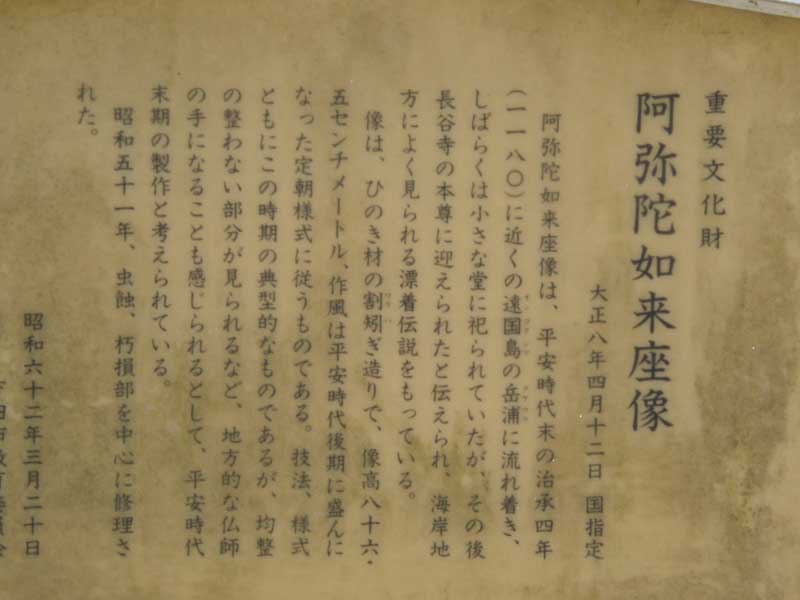 重要文化財
阿弥陀如来座像
大正八年四月十二日 国指定
阿弥陀如来座像は、平安時代末の治承四年
(一一八〇)に近くの遠国島の岳浦に流れ着き、
しばらくは小さな堂に祀られていたが、その後
長谷寺の本尊に迎えられたと伝えられ、海岸地
方によく見られる漂着伝説をもっている。
像は、ひのき材の割矧ぎ造りで、像高八十六・
五センチメートル、作風は平安時代後期に盛んに
なった定朝様式に従うものである。技法、様式
ともにこの時期の典型的なものであるが、均整
の整わない部分が見られるなど、地方的な仏師
の手になることも感じられるとして、平安時代
末期の製作と考えられている。
昭和五十一年、虫蝕、朽損部を中心に修理さ
れた。
昭和六十二年三月二十日
下田市教育委員会